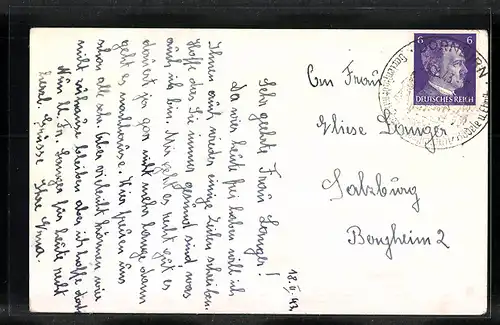 18. V. 43
Sehr geehrte Frau Langer!
Da wir heute frei haben will ich
Ihnen auch wieder einige Zeilen schreiben.
Hoffe das Sie immer gesund sind was
auch ich bin. Mir geht es recht gut es
dauert ja gar nicht mehr lange dann
geht es nachhause. Wir freuen uns
schon alle sehr. Aber vieleicht können wir
nicht zuhause bleiben aber ich hoffe doch
Nun lb. Fr. Langer für heute recht
herzl. Grüsse
Ihre Anna.
An Frau
Langer
Salzburg
Bergheim 2
6 6
DEUTSCHES REICH